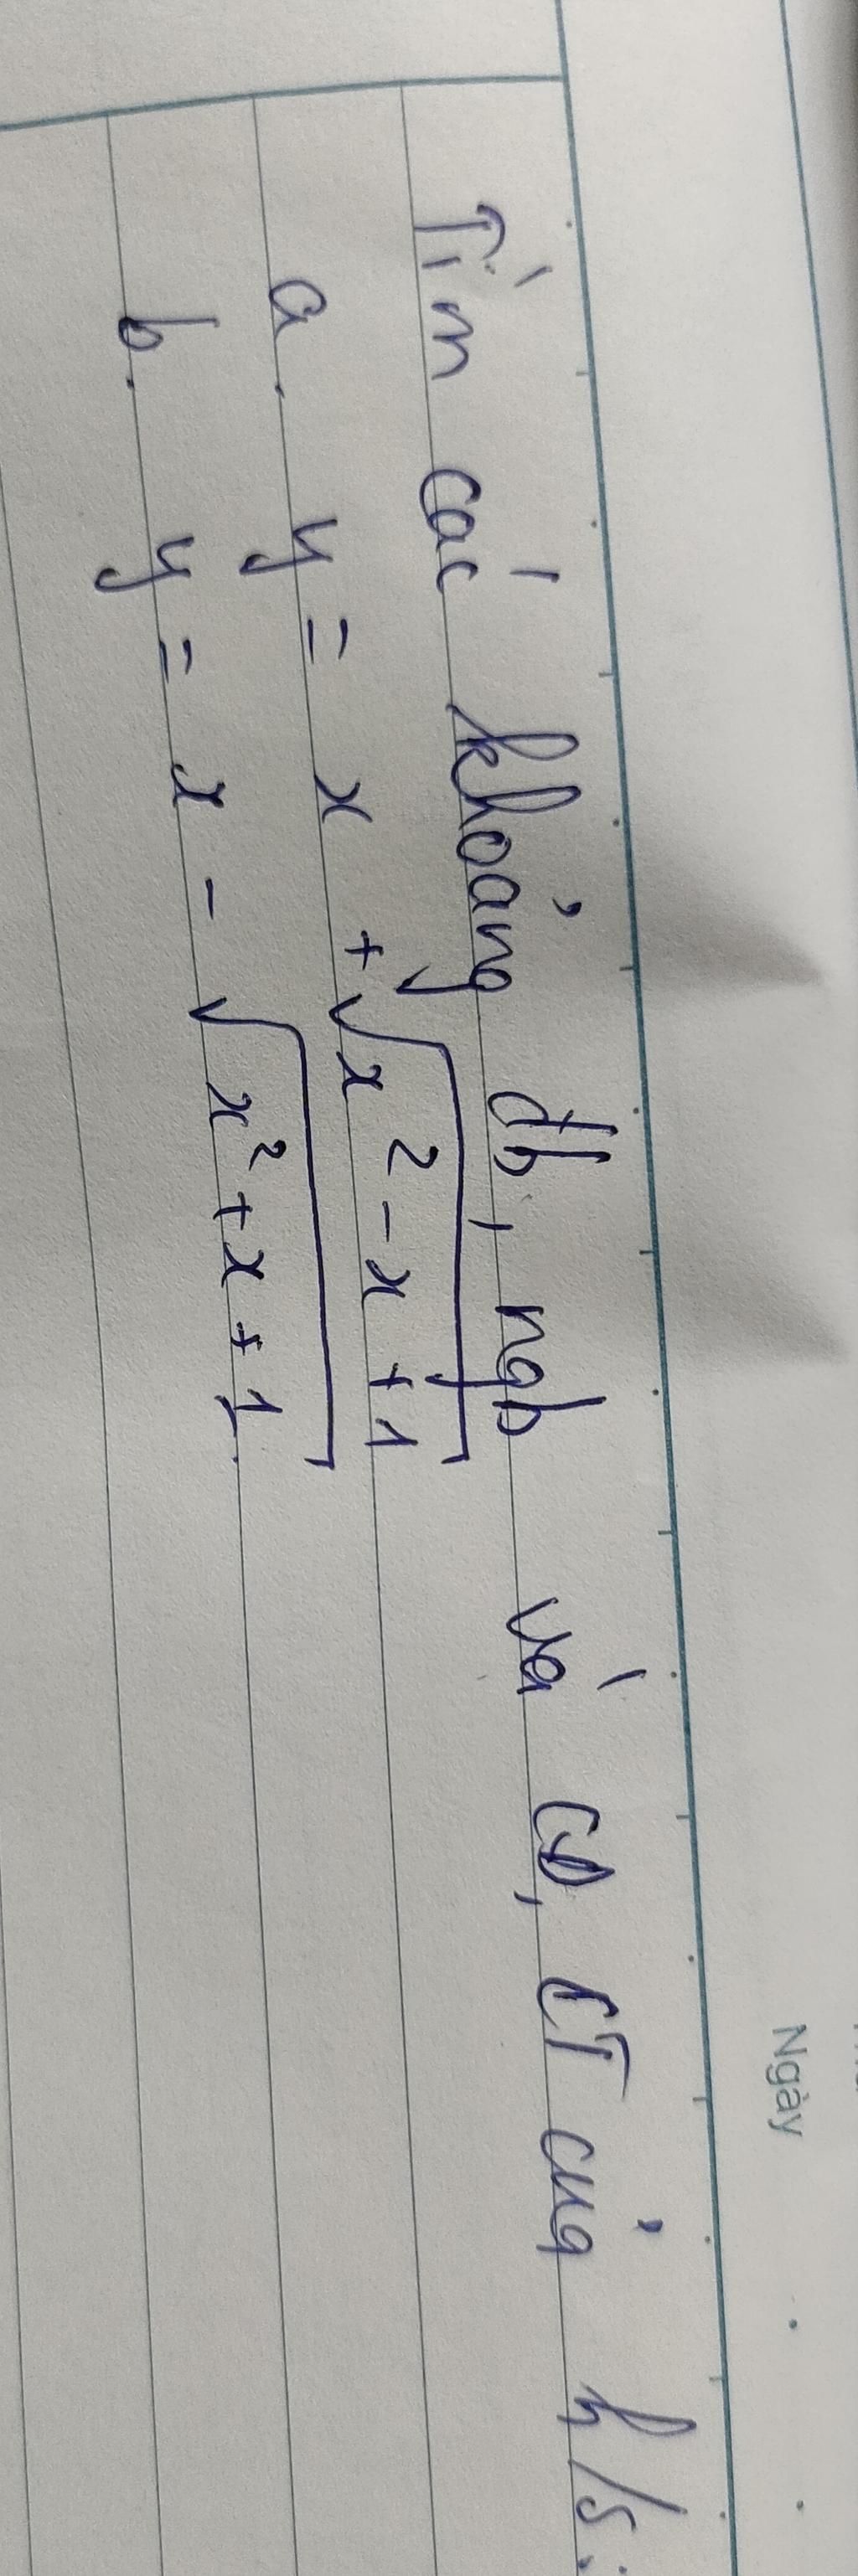 Ngày
Tìm các khoảng đb, ngb và CĐ, CT của h/s:
a. y = x + √(x² - x + 1)
b. y = x - √(x² + x + 1)